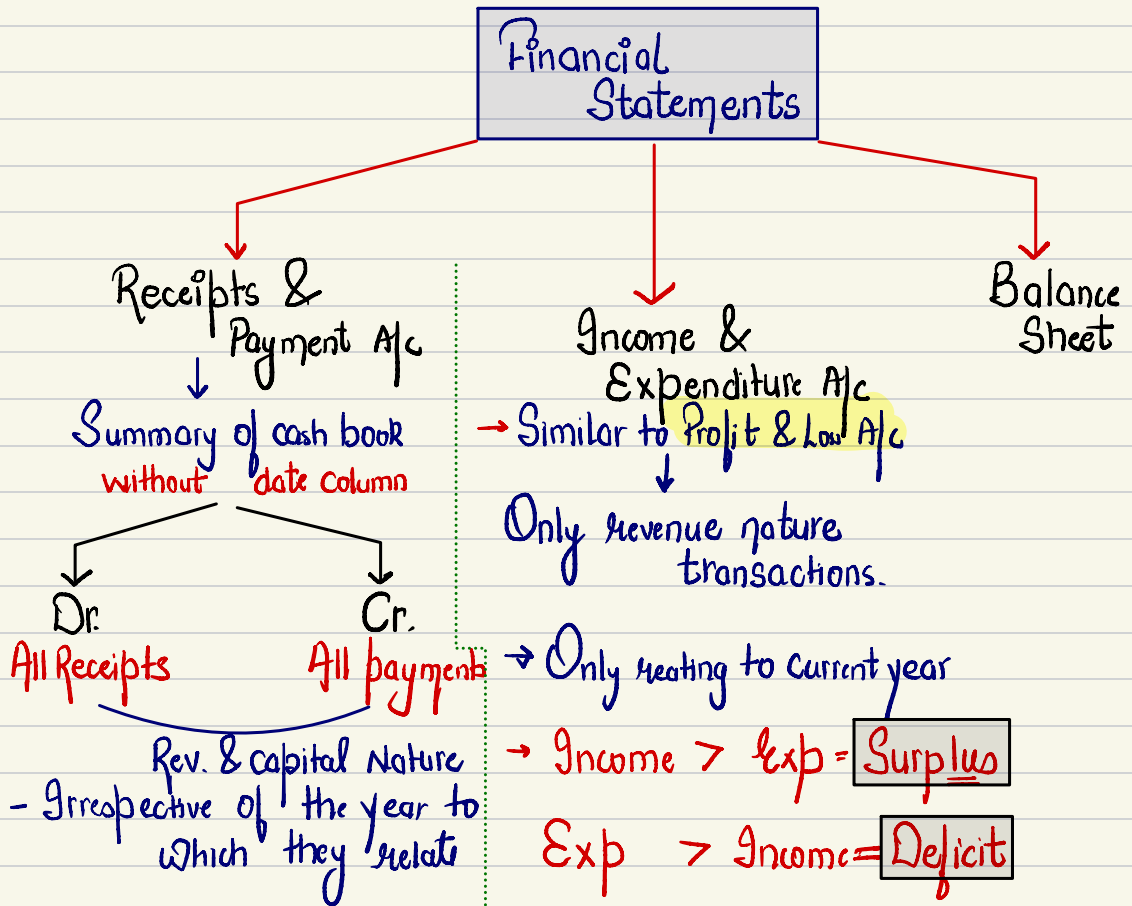 Financial
Statements
Receipts &
Payment A/c
Summary of cash book
without date column
Dr.
Cr.
All Receipts
All payments
Rev. & capital Nature
- Irrespective of the year to
which they relate
Income &
Expenditure A/c
→ Similar to Profit & Loss A/c
Only revenue nature
transactions.
→ Only reating to current year
→ Income > Exp = Surplus
Exp > Income = Deficit
Balance
Sheet